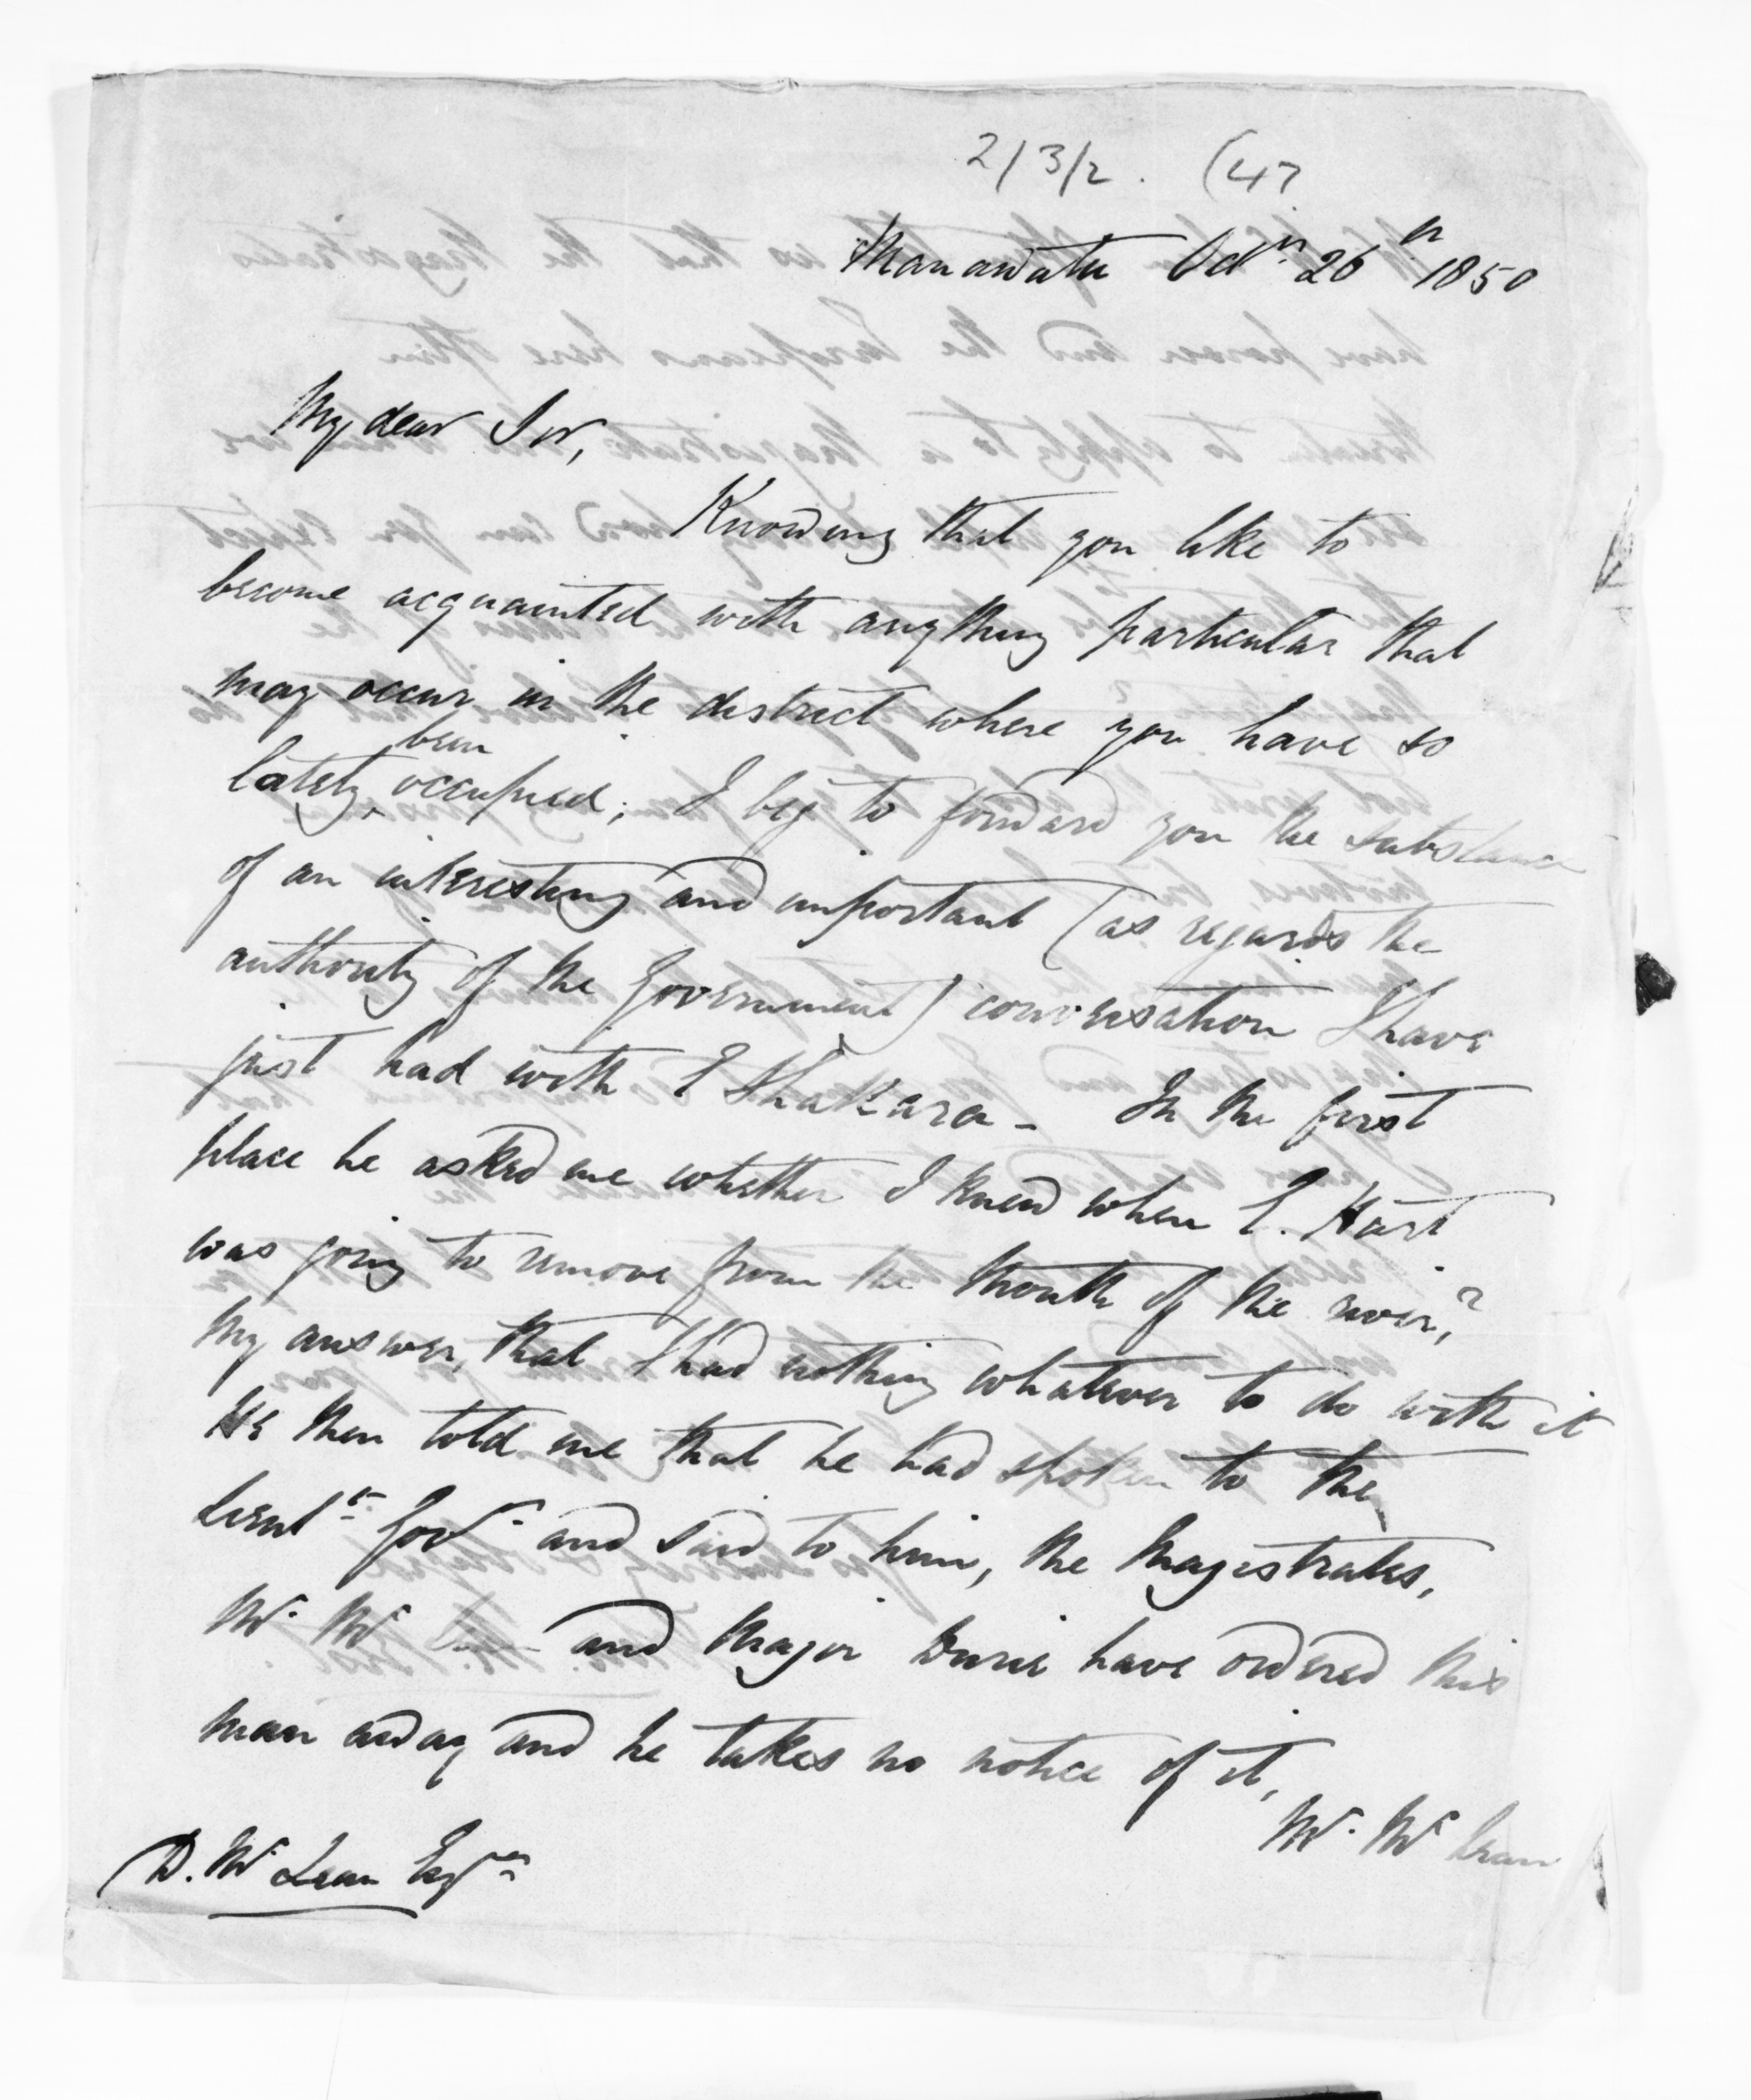 2/3/2. (47
Manawatu Octr. 26th 1850
My dear Sir,
Knowing that you like to
become acquainted with anything particular that
may occur in the district where you have so
been
lately occupied; I beg to forward you the substance
of an interesting and important (as regards the
authority of the Government) conversation I have
just had with E Whakara - In the first
place he asked me whether I knew when E. Hart
was going to remove from the Mouth of the river,?
My answer, that I had nothing whatever to do with it
He then told me that he had spoken to the
Lieut. Govr. and said to him, the Magistrates,
Mr. Mc Lean and Major Durie have ordered this
man away and he takes no notice of it,
Mr. Mc Lean
D. Mc Lean Esqre